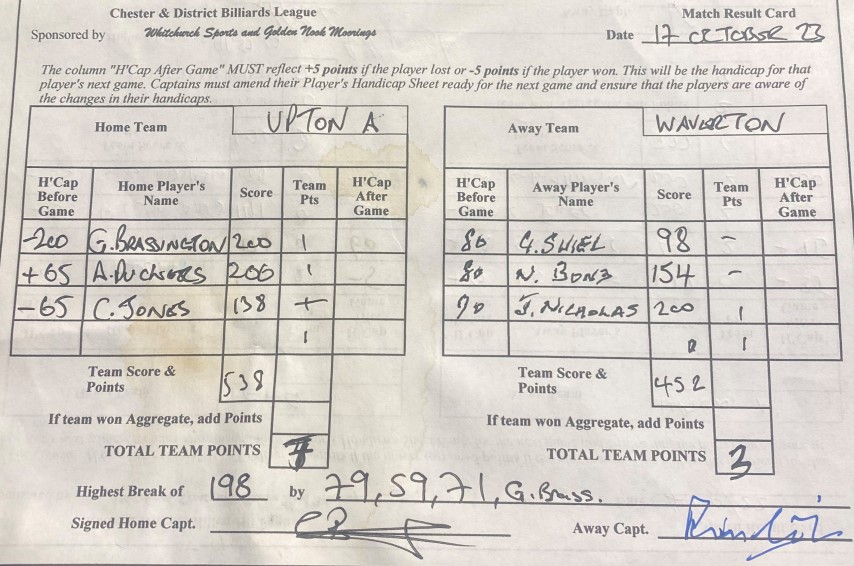 Chester & District Billiards League
Match Result Card
Sponsored by Whitchurch Sports and Golden Nook Moorings
Date 17 OCTOBER 23
The column "H'Cap After Game" MUST reflect +5 points if the player lost or -5 points if the player won. This will be the handicap for that
player's next game. Captains must amend their Player's Handicap Sheet ready for the next game and ensure that the players are aware of
the changes in their handicaps.
Home Team UPTON A
H'Cap Before Game Home Player's Name Score Team Pts H'Cap After Game
-200 G. BRASSINGTON 200 1
+65 A. 200 1
-65 C. JONES 138
1
Team Score & Points 538
If team won Aggregate, add Points
TOTAL TEAM POINTS
Away Team WAVERTON
H'Cap Before Game Away Player's Name Score Team Pts H'Cap After Game
80 G. SHIEL 98 -
80 N. 154 -
90 J. NICHOLAS 200 1
1
Team Score & Points 452
If team won Aggregate, add Points
TOTAL TEAM POINTS 3
Highest Break of 198 by 79, 59, 71, G. Brass.
Signed Home Capt.
Away Capt.